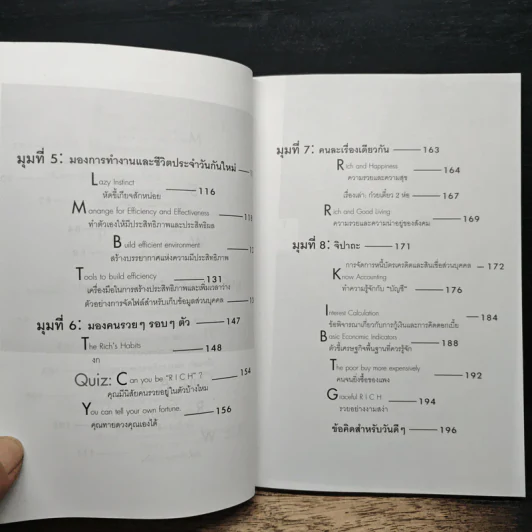 มุมที่ 5: มองการทำงานและชีวิตประจำวันกันใหม่
Lazy Instinct
หัดขี้เกียจสักหน่อย
116
Manange for Efficiency and Effectiveness
ทำตัวเองให้มีประสิทธิภาพและประสิทธิผล
Build efficient environment
สร้างบรรยากาศแห่งความมีประสิทธิภาพ
Tools to build efficiency
131
เครื่องมือในการสร้างประสิทธิภาพและเพิ่มเวลาว่าง
ตัวอย่างการจัดไฟล์สำหรับเก็บข้อมูลส่วนบุคคล
มุมที่ 6: มองคนรวย ๆ รอบ ๆ ตัว 147
The Rich's Habits
148
Quiz: Can you be "R I C H" ? 154
คุณมีนิสัยคนรวยอยู่ในตัวบ้างไหม
You can tell your own fortune.
คุณทายดวงคุณเองได้
156
มุมที่ 7: คนละเรื่องเดียวกัน 163
Rich and Happiness
ความรวยและความสุข
164
เรื่องเล่า: ก๋วยเตี๋ยว 2 ห่อ 167
Rich and Good Living
ความรวยและความน่าอยู่ของสังคม
169
มุมที่ 8: จิปาถะ 171
การจัดการหนี้บัตรเครดิตและสินเชื่อส่วนบุคคล 172
Know Accounting
ทำความรู้จักกับ "บัญชี"
176
Interest Calculation
ข้อพิจารณาเกี่ยวกับการกู้เงินและการคิดดอกเบี้ย
184
Basic Economic Indicators
ตัวชี้เศรษฐกิจพื้นฐานที่ควรรู้จัก
188
The poor buy more expensively
คนจนยิ่งซื้อของแพง
192
Graceful R I C H
รวยอย่างงามสง่า
194
ข้อคิดสำหรับวันดี ๆ 196